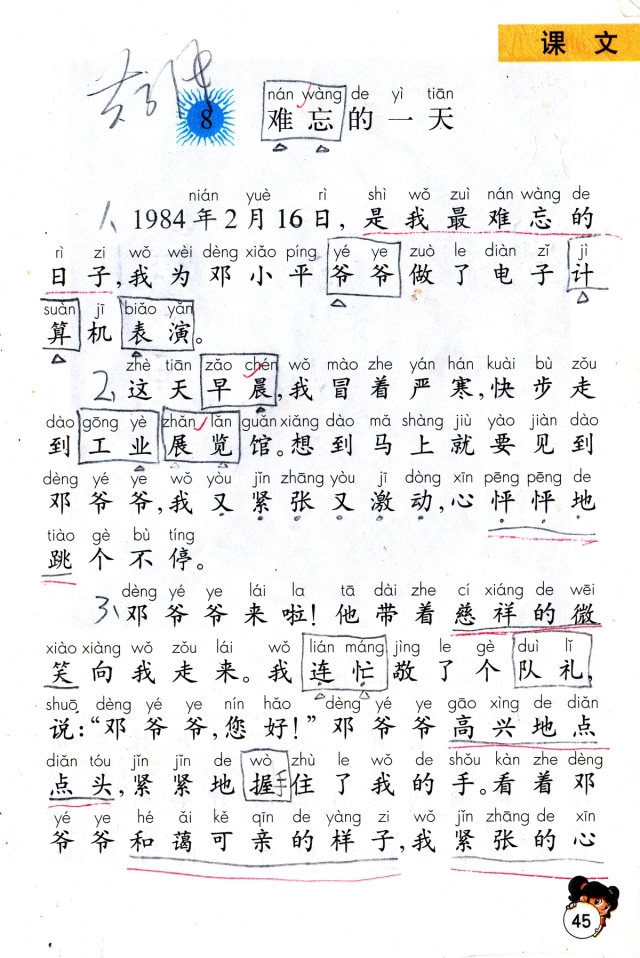 课 文
8
nán wàng de yì tiān
难 忘 的 一 天
nián yuè rì shì wǒ zuì nán wàng de
1、1984 年 2 月 16 日，是 我 最 难 忘 的
rì zi wǒ wèi dèng xiǎo píng yé ye zuò le diàn zǐ jì
日 子，我 为 邓 小 平 爷 爷 做 了 电 子 计
suàn jī biǎo yǎn
算 机 表 演。
zhè tiān zǎo chén wǒ mào zhe yán hán kuài bù zǒu
2、这 天 早 晨，我 冒 着 严 寒，快 步 走
dào gōng yè zhǎn lǎn guǎn xiǎng dào mǎ shàng jiù yào jiàn dào
到 工 业 展 览 馆。想 到 马 上 就 要 见 到
dèng yé ye wǒ yòu jǐn zhāng yòu jī dòng xīn pēng pēng de
邓 爷 爷，我 又 紧 张 又 激 动，心 怦 怦 地
tiào gè bù tíng
跳 个 不 停。
dèng yé ye lái la tā dài zhe cí xiáng de wēi
3、邓 爷 爷 来 啦！他 带 着 慈 祥 的 微
xiào xiàng wǒ zǒu lái wǒ lián máng jìng le gè duì lǐ
笑 向 我 走 来。我 连 忙 敬 了 个 队 礼，
shuō dèng yé ye nín hǎo dèng yé ye gāo xìng de diǎn
说：“邓 爷 爷，您 好！”邓 爷 爷 高 兴 地 点
diǎn tóu jǐn jǐn de wò zhù le wǒ de shǒu kàn zhe dèng
点 头，紧 紧 地 握 住 了 我 的 手。看 着 邓
yé ye hé ǎi kě qīn de yàng zi wǒ jǐn zhāng de xīn
爷 爷 和 蔼 可 亲 的 样 子，我 紧 张 的 心
45